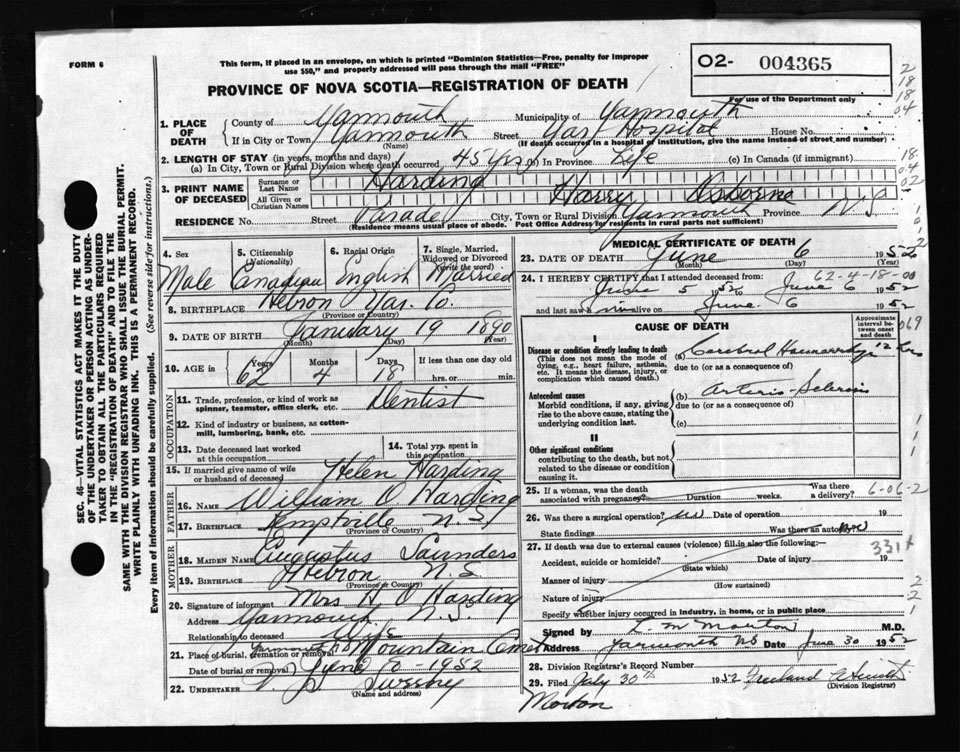 FORM 6
This form, if placed in an envelope, on which is printed "Dominion Statistics—Free, penalty for improper
use $50," and properly addressed will pass through the mail "FREE"
PROVINCE OF NOVA SCOTIA—REGISTRATION OF DEATH
O2- 004365
For use of the Department only
1. PLACE OF DEATH
County of Yarmouth Municipality of Yarmouth
If in City or Town Yarmouth Street Yar Hospital House No.
(Name) (If death occurred in a hospital or institution, give the name instead of street and number)
2. LENGTH OF STAY (in years, months and days)
(a) In City, Town or Rural Division where death occurred 45 Yrs (b) In Province Life (c) In Canada (if immigrant)
3. PRINT NAME OF DECEASED
Surname or Last Name Harding
All Given or Christian Names Harry Osborne
RESIDENCE No. Street Parade City, Town or Rural Division Yarmouth Province N S
(Residence means usual place of abode. Post Office Address for residents in rural parts not sufficient)
4. Sex Male
5. Citizenship (Nationality) Canadian
6. Racial Origin English
7. Single, Married, Widowed or Divorced (write the word) Married
8. BIRTHPLACE Hebron Yar. Co.
(Province or Country)
9. DATE OF BIRTH January 19 1890
(Month) (Day) (Year)
10. AGE in Years Months Days If less than one day old
62 4 18 hrs. or min.
OCCUPATION
11. Trade, profession, or kind of work as spinner, teamster, office clerk, etc. Dentist
12. Kind of industry or business, as cotton-mill, lumbering, bank, etc.
13. Date deceased last worked at this occupation
14. Total yrs. spent in this occupation
15. If married give name of wife or husband of deceased Helen Harding
FATHER
16. NAME William O Harding
17. BIRTHPLACE Kemptville N.S.
(Province or Country)
MOTHER
18. MAIDEN NAME Augustus Saunders
19. BIRTHPLACE Hebron N.S.
(Province or Country)
20. Signature of informant Mrs H O Harding
Address Yarmouth N.S.
Relationship to deceased Wife
21. Place of burial, cremation or removal Yarmouth Mountain Cemet
Date of burial or removal June 8 - 1952
22. UNDERTAKER V. J. Sweeny
(Name and address)
MEDICAL CERTIFICATE OF DEATH
23. DATE OF DEATH June 6 1952
(Month) (Day) (Year)
62-4-18-00
24. I HEREBY CERTIFY that I attended deceased from:
June 5 1952 to June 6 1952
and last saw him alive on June 6 1952
CAUSE OF DEATH
Approximate interval between onset and death
069
I
Disease or condition directly leading to death
(This does not mean the mode of dying, e.g., heart failure, asthenia, etc. It means the disease, injury, or complication which caused death.)
(a) Cerebral Hemorrhage 12 hrs
due to (or as a consequence of)
Antecedent causes
Morbid conditions, if any, giving rise to the above cause, stating the underlying condition last.
(b) Arterio-Sclerosis
due to (or as a consequence of)
(c)
II
Other significant conditions
contributing to the death, but not related to the disease or condition causing it.
25. If a woman, was the death associated with pregnancy? Duration weeks. Was there a delivery?
6-06-2
26. Was there a surgical operation? No Date of operation 19
State findings Was there an autopsy No
27. If death was due to external causes (violence) fill in also the following:—
331+
Accident, suicide or homicide? Date of injury 19
(State which)
Manner of injury
(How sustained)
Nature of injury
Specify whether injury occurred in industry, in home, or in public place
Signed by L. M Morton M.D.
Address Yarmouth NS Date June 30 1952
28. Division Registrar's Record Number
29. Filed July 30th 1952 Freeland
(Division Registrar)
Morton
SEC. 46—VITAL STATISTICS ACT MAKES IT THE DUTY
OF THE UNDERTAKER OR PERSON ACTING AS UNDER-
TAKER TO OBTAIN ALL THE PARTICULARS REQUIRED
IN THE "REGISTRATION OF DEATH" AND TO FILE THE
SAME WITH THE DIVISION REGISTRAR WHO SHALL ISSUE THE BURIAL PERMIT.
WRITE PLAINLY WITH UNFADING INK. THIS IS A PERMANENT RECORD.
Every item of information should be carefully supplied. (See reverse side for instructions.)